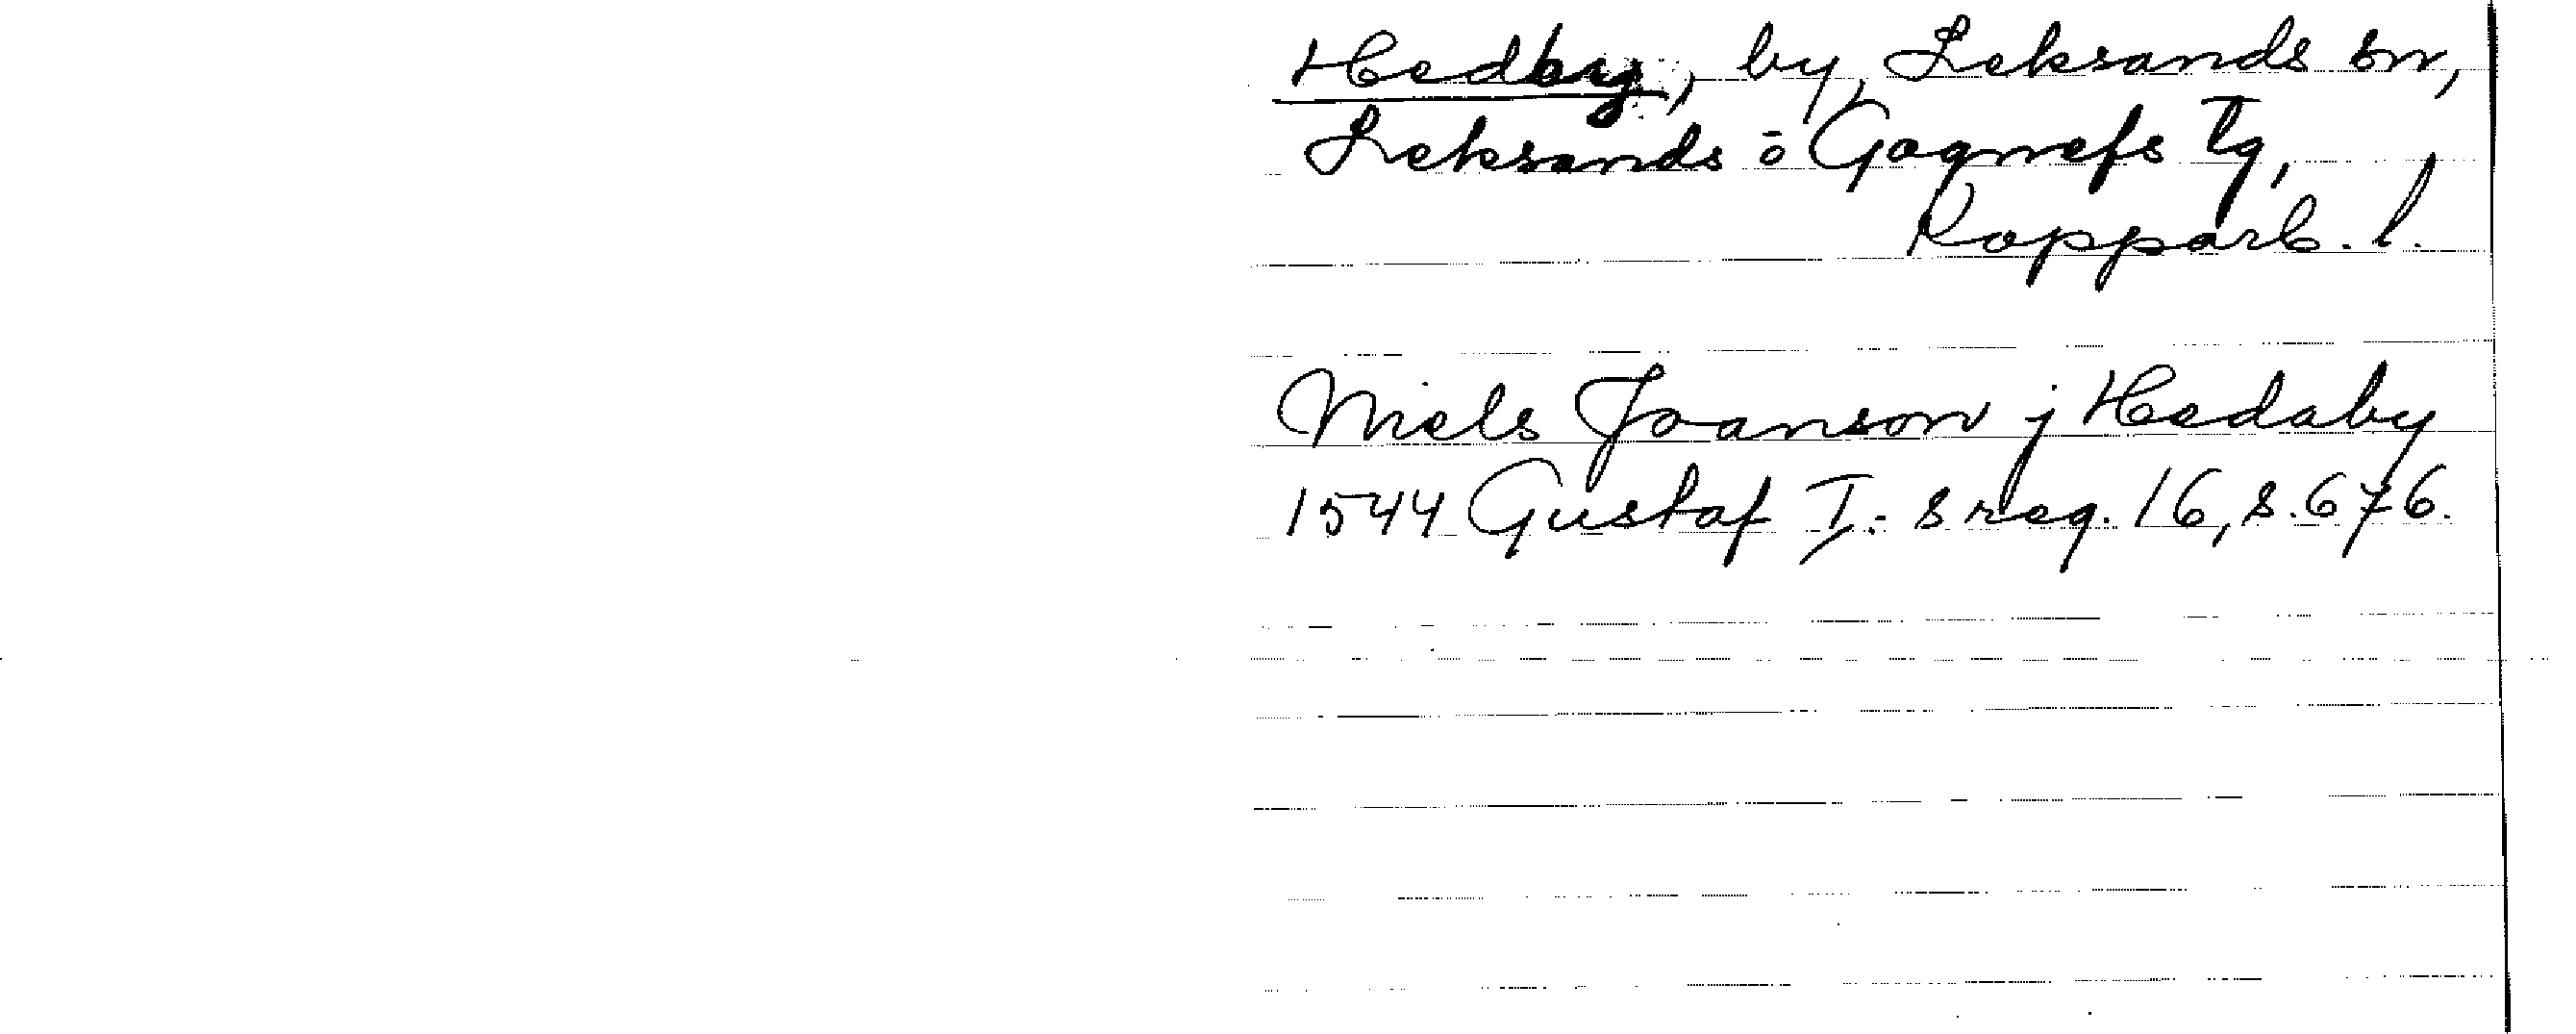 Hedby, by, Leksands sn,
Leksands o Gagnefs tg,
Kopparb. l.
Niels Joanson j Hedaby
1544 Gustaf I:s reg. 16, s. 676.